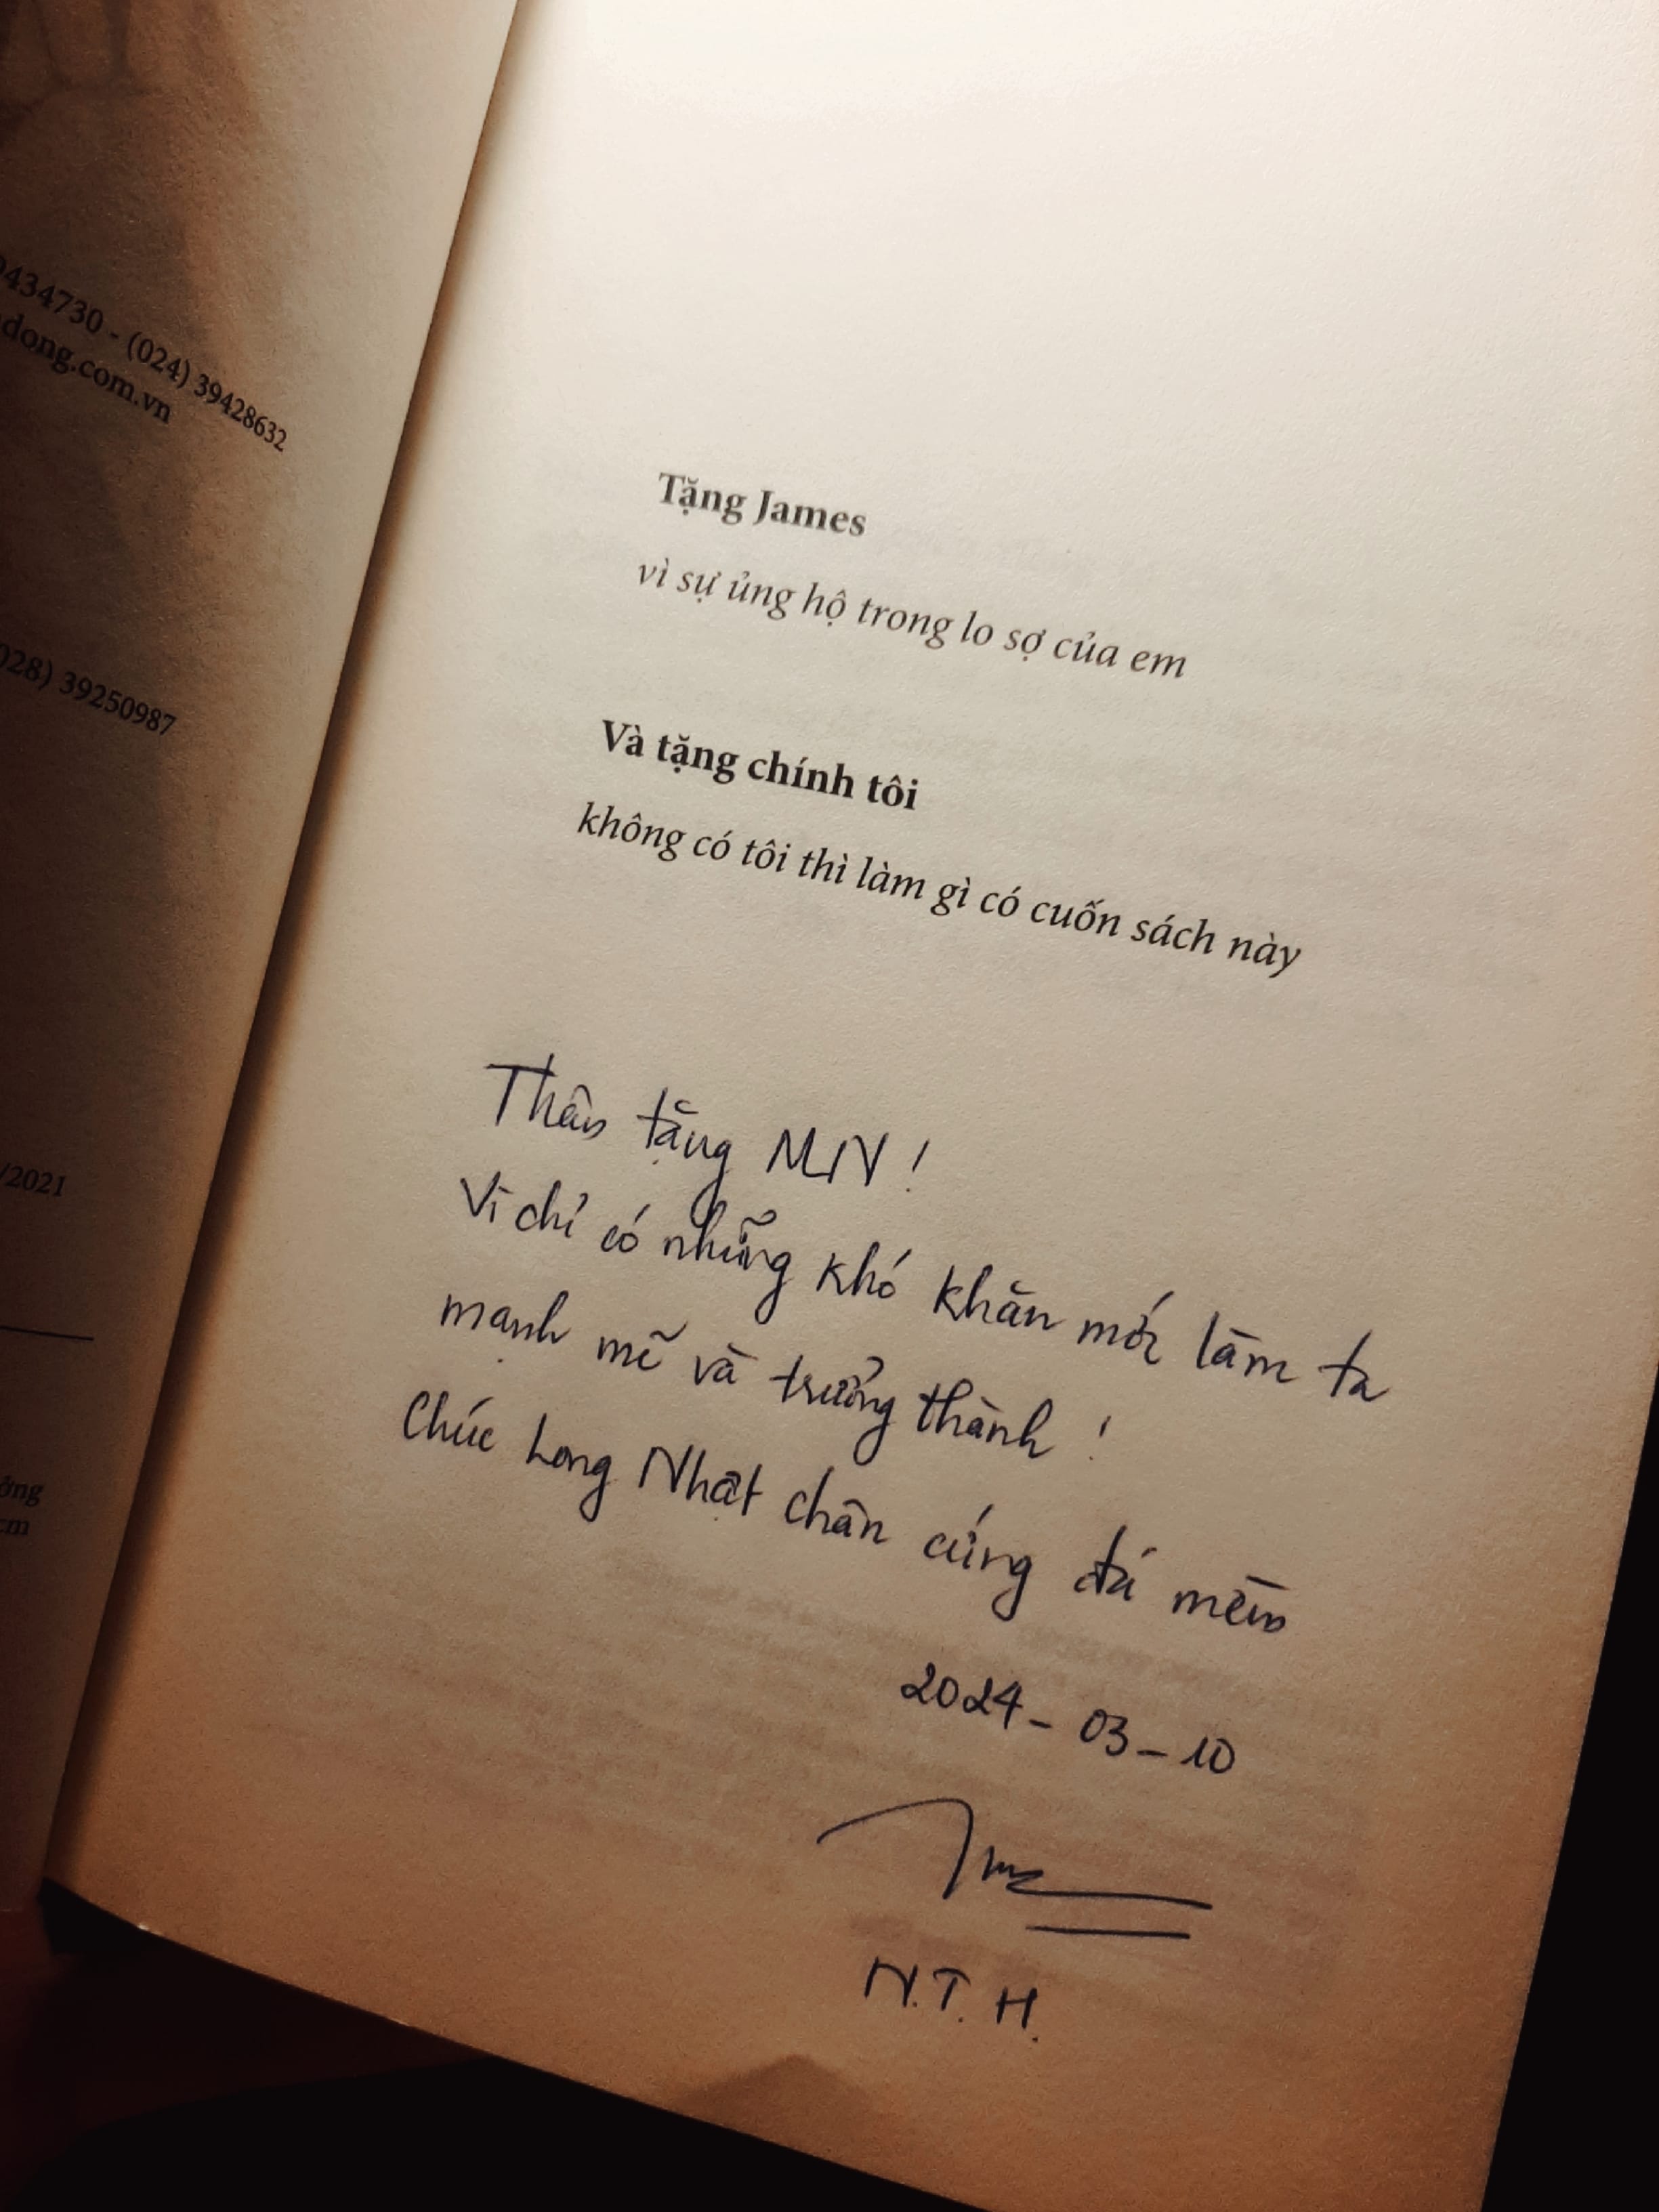 0434730 - (024) 39428632
dong.com.vn
028) 39250987
/2021
cm
Tặng James
vì sự ủng hộ trong lo sợ của em
Và tặng chính tôi
không có tôi thì làm gì có cuốn sách này
Thân tặng MIN!
Vì chỉ có những khó khăn mới làm ta
mạnh mẽ và trưởng thành!
Chúc Long Nhật chân cứng đá mềm
2024-03-10
N.T.H.